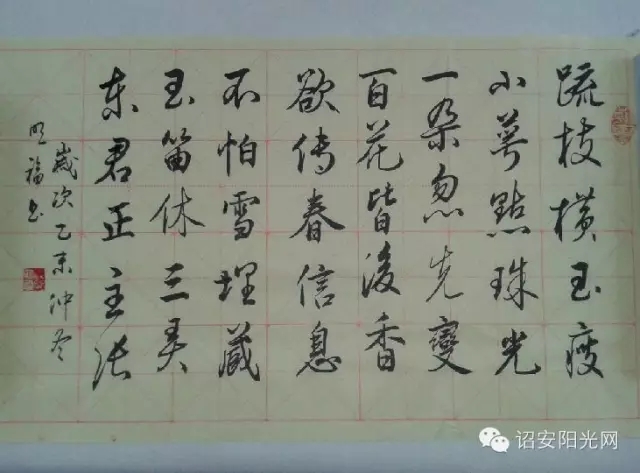 疏枝横玉瘦
小萼點珠光
一朶忽先變
百花皆後香
欲傳春信息
不怕雪埋藏
玉笛休三弄
东君正主张
歲次乙未仲冬
明福书
诏安阳光网